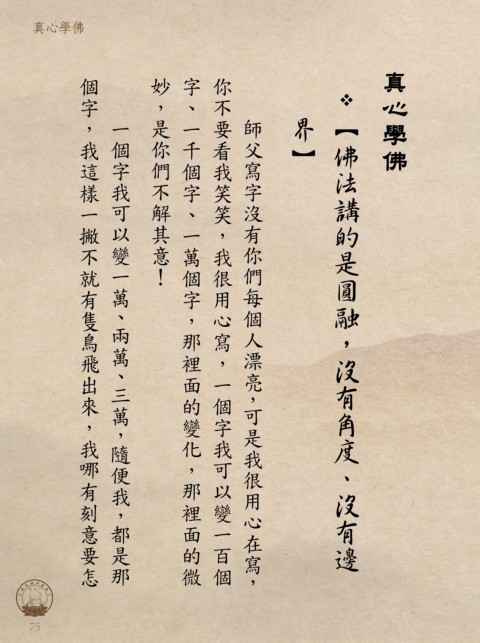 真心學佛
真心學佛
❖【佛法講的是圓融，沒有角度、沒有邊
界】
師父寫字沒有你們每個人漂亮，可是我很用心在寫，
你不要看我笑笑，我很用心寫，一個字我可以變一百個
字、一千個字、一萬個字，那裡面的變化，那裡面的微
妙，是你們不解其意！
一個字我可以變一萬、兩萬、三萬，隨便我，都是那
個字，我這樣一撇不就有隻鳥飛出來，我哪有刻意要怎
75